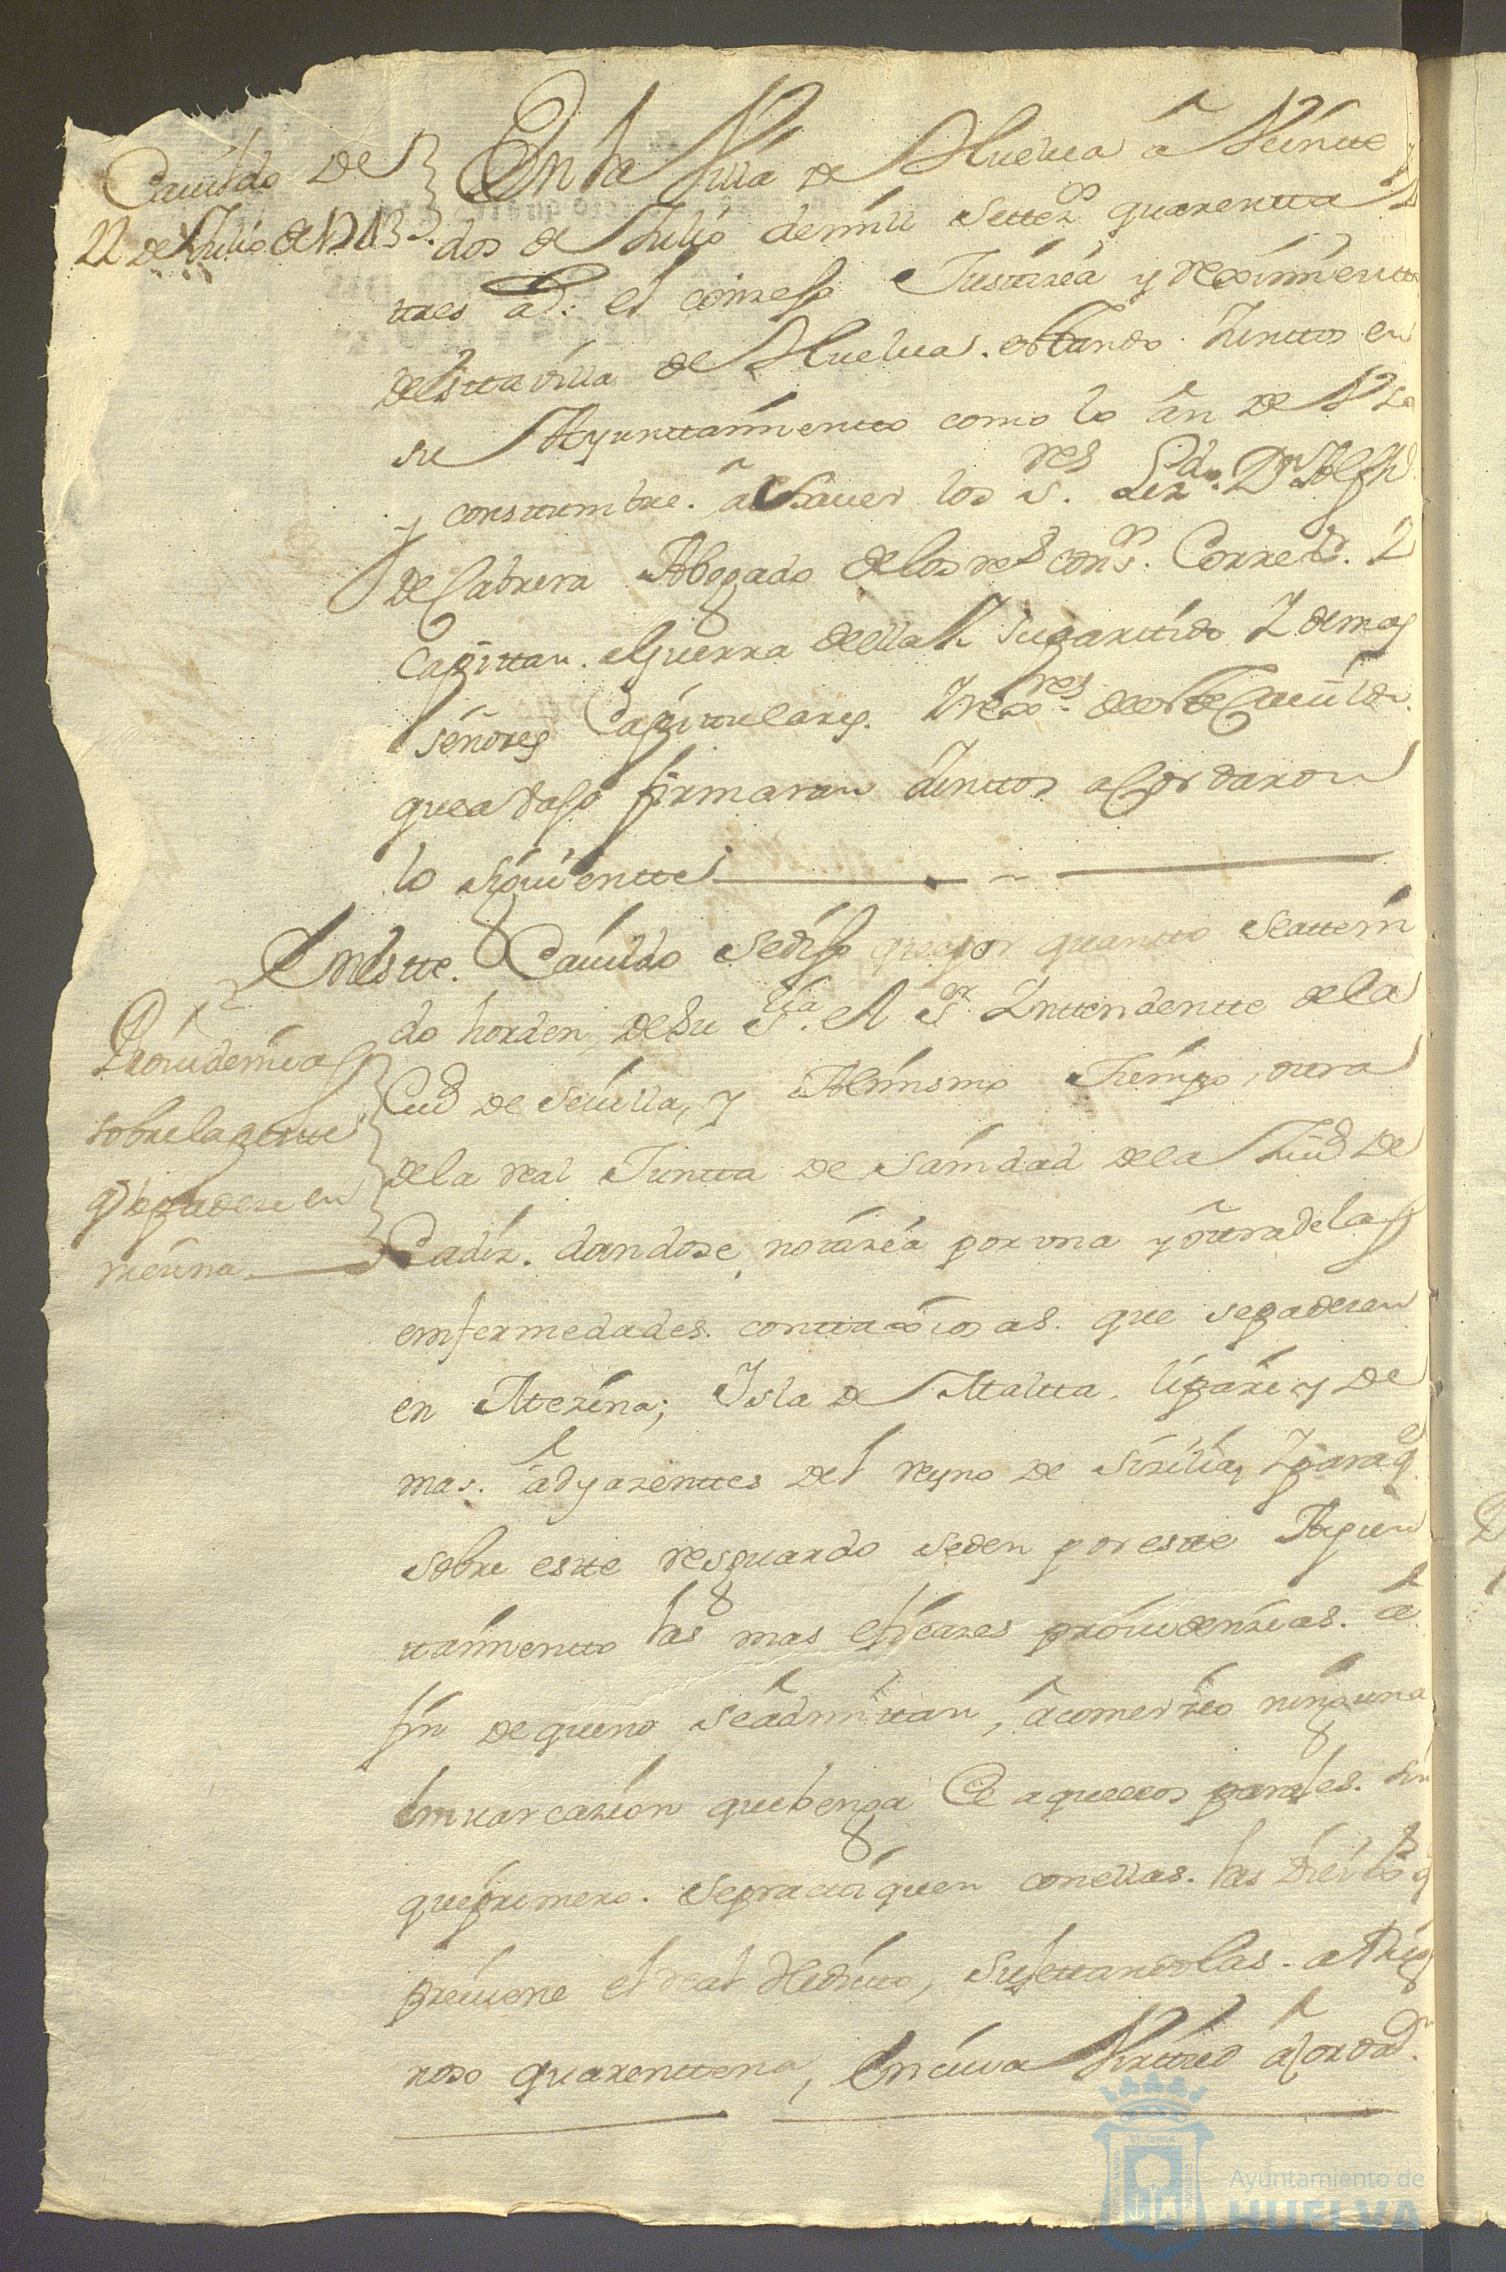 Cavildo de
22 de Julio de 1743
En la Villa de Huelva â Veintte y
dos de Julio de mill settez.os quarentta y
tres a.s el conzejo Justizia y reximientto
destta villa de Huelva. estando Junttos en
su Ayunttamientto como lo ân de Vso
y costtumbre. â saver los s.res Lizdo. Dn
de Cabrera Abogado de los res cons.os Correx.or Y
Capittan. aguerra della Y su partido Y demas
señores Capittulares. Y rex.res deeste Cavildo.
que avajo firmaran Junttos acordaron
lo siguientte
En estte. Cavildo se dijo que por quantto seatteni
do horden, de su S.ria el S.or Inttendentte de la
Ciud de Sevilla, y Al mismo Tiempo, otra
de la real Juntta de Sanidad de la Ciud de
Cadiz. dandose, notizia por vna y otra de las
enfermedades. conttaxiosas. que se padecen
en Mezina; Isla de Maltta, lipari y de
mas. âdyazenttes del reyno de Sizilia, Y para q.e
sobre estte resguardo se den por estte Ayun
ttamientto las mas eficazes providenzias. â
fin de que no se admittan, â comerzio ninguna
Embarcazion que benga de aquellos parajes. sin
que primero. se practtiquen con ellas. las
previene el real Edictto, sujettandolas. a Rigu
roso quarenttena, En cuia Virttud acordar.n
Providenzia
sobre la pestte
q.e se padeze en
mezina
Ayuntamiento de
HUELVA